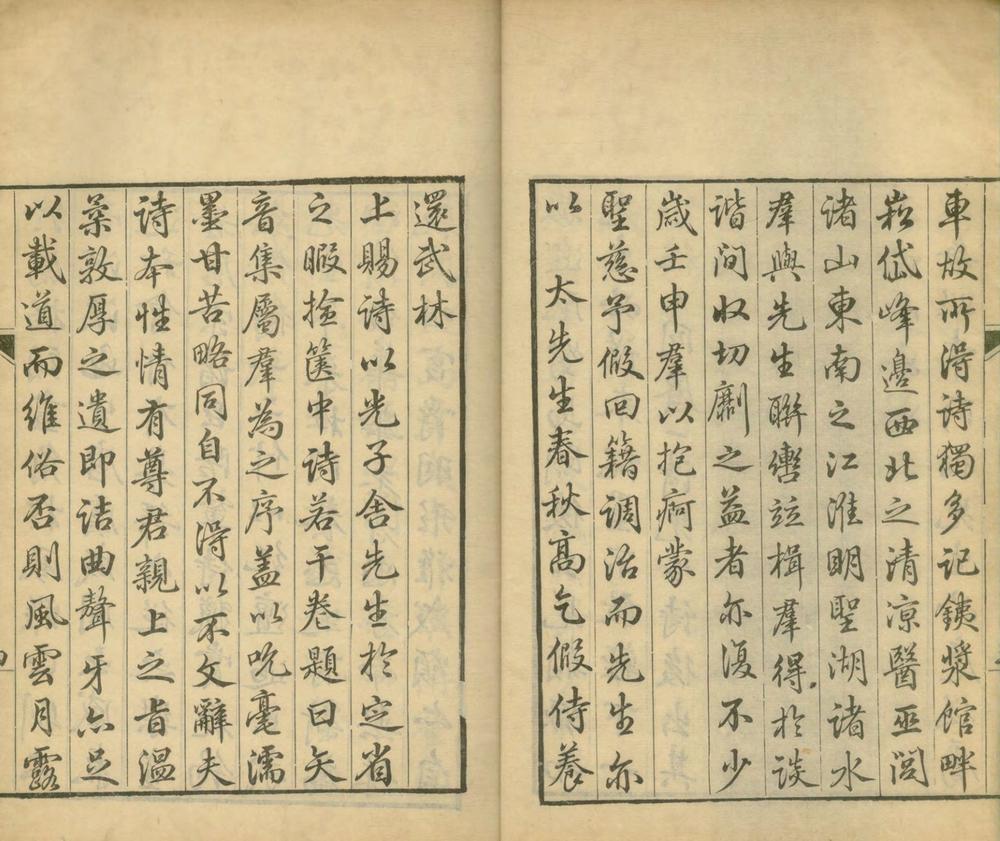 車故所得詩獨多記銕漿館畔
崧岱峰邊西北之清涼醫巫閭
諸山東南之江淮明聖湖諸水
羣與先生聯轡竝楫羣得於談
諧間收切劘之益者亦復不少
歲壬申羣以抱疴蒙
聖慈予假回籍調治而先生亦
以太先生春秋高乞假侍養
還武林
上賜詩以光子舍先生於定省
之暇撿篋中詩若干卷題曰矢
音集屬羣為之序蓋以吮毫濡
墨甘苦略同自不得以不文辭夫
詩本性情有尊君親上之旨溫
柔敦厚之遺即詰曲聱牙亦足
以載道而維俗否則風雲月露